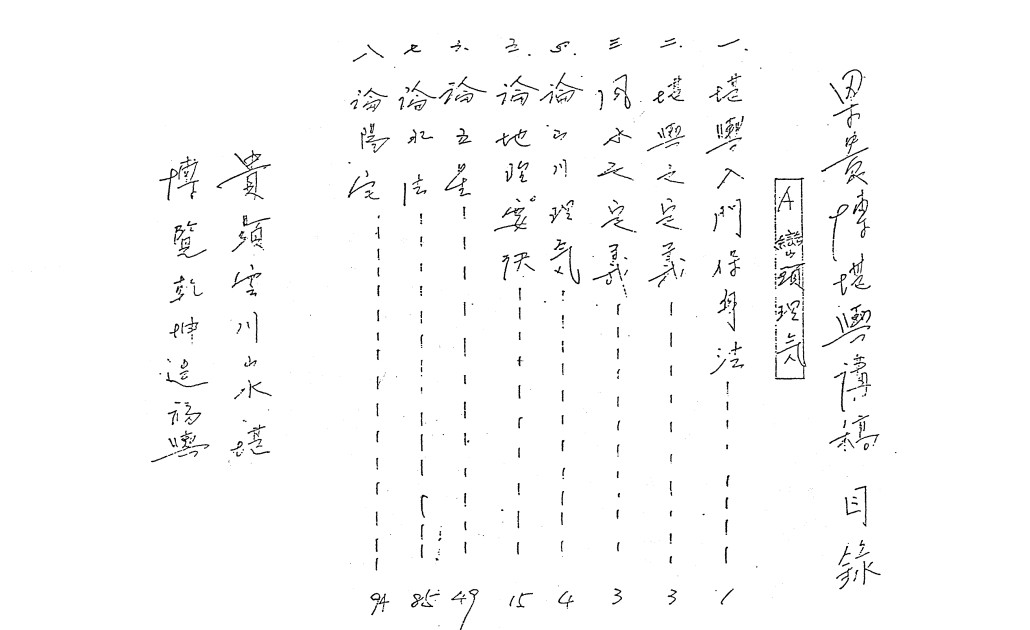 梁貴博堪輿講稿 目錄
A 巒頭理気
一. 堪輿入門保身法 1
二. 堪輿之定義 3
三 風水之定義 3
四. 論山川理気 4
五. 論地理要訣 15
六. 論五星 49
七 論水法 85
八 論陽宅 94
貴顕雲川山水堪
博覧乾坤造福輿